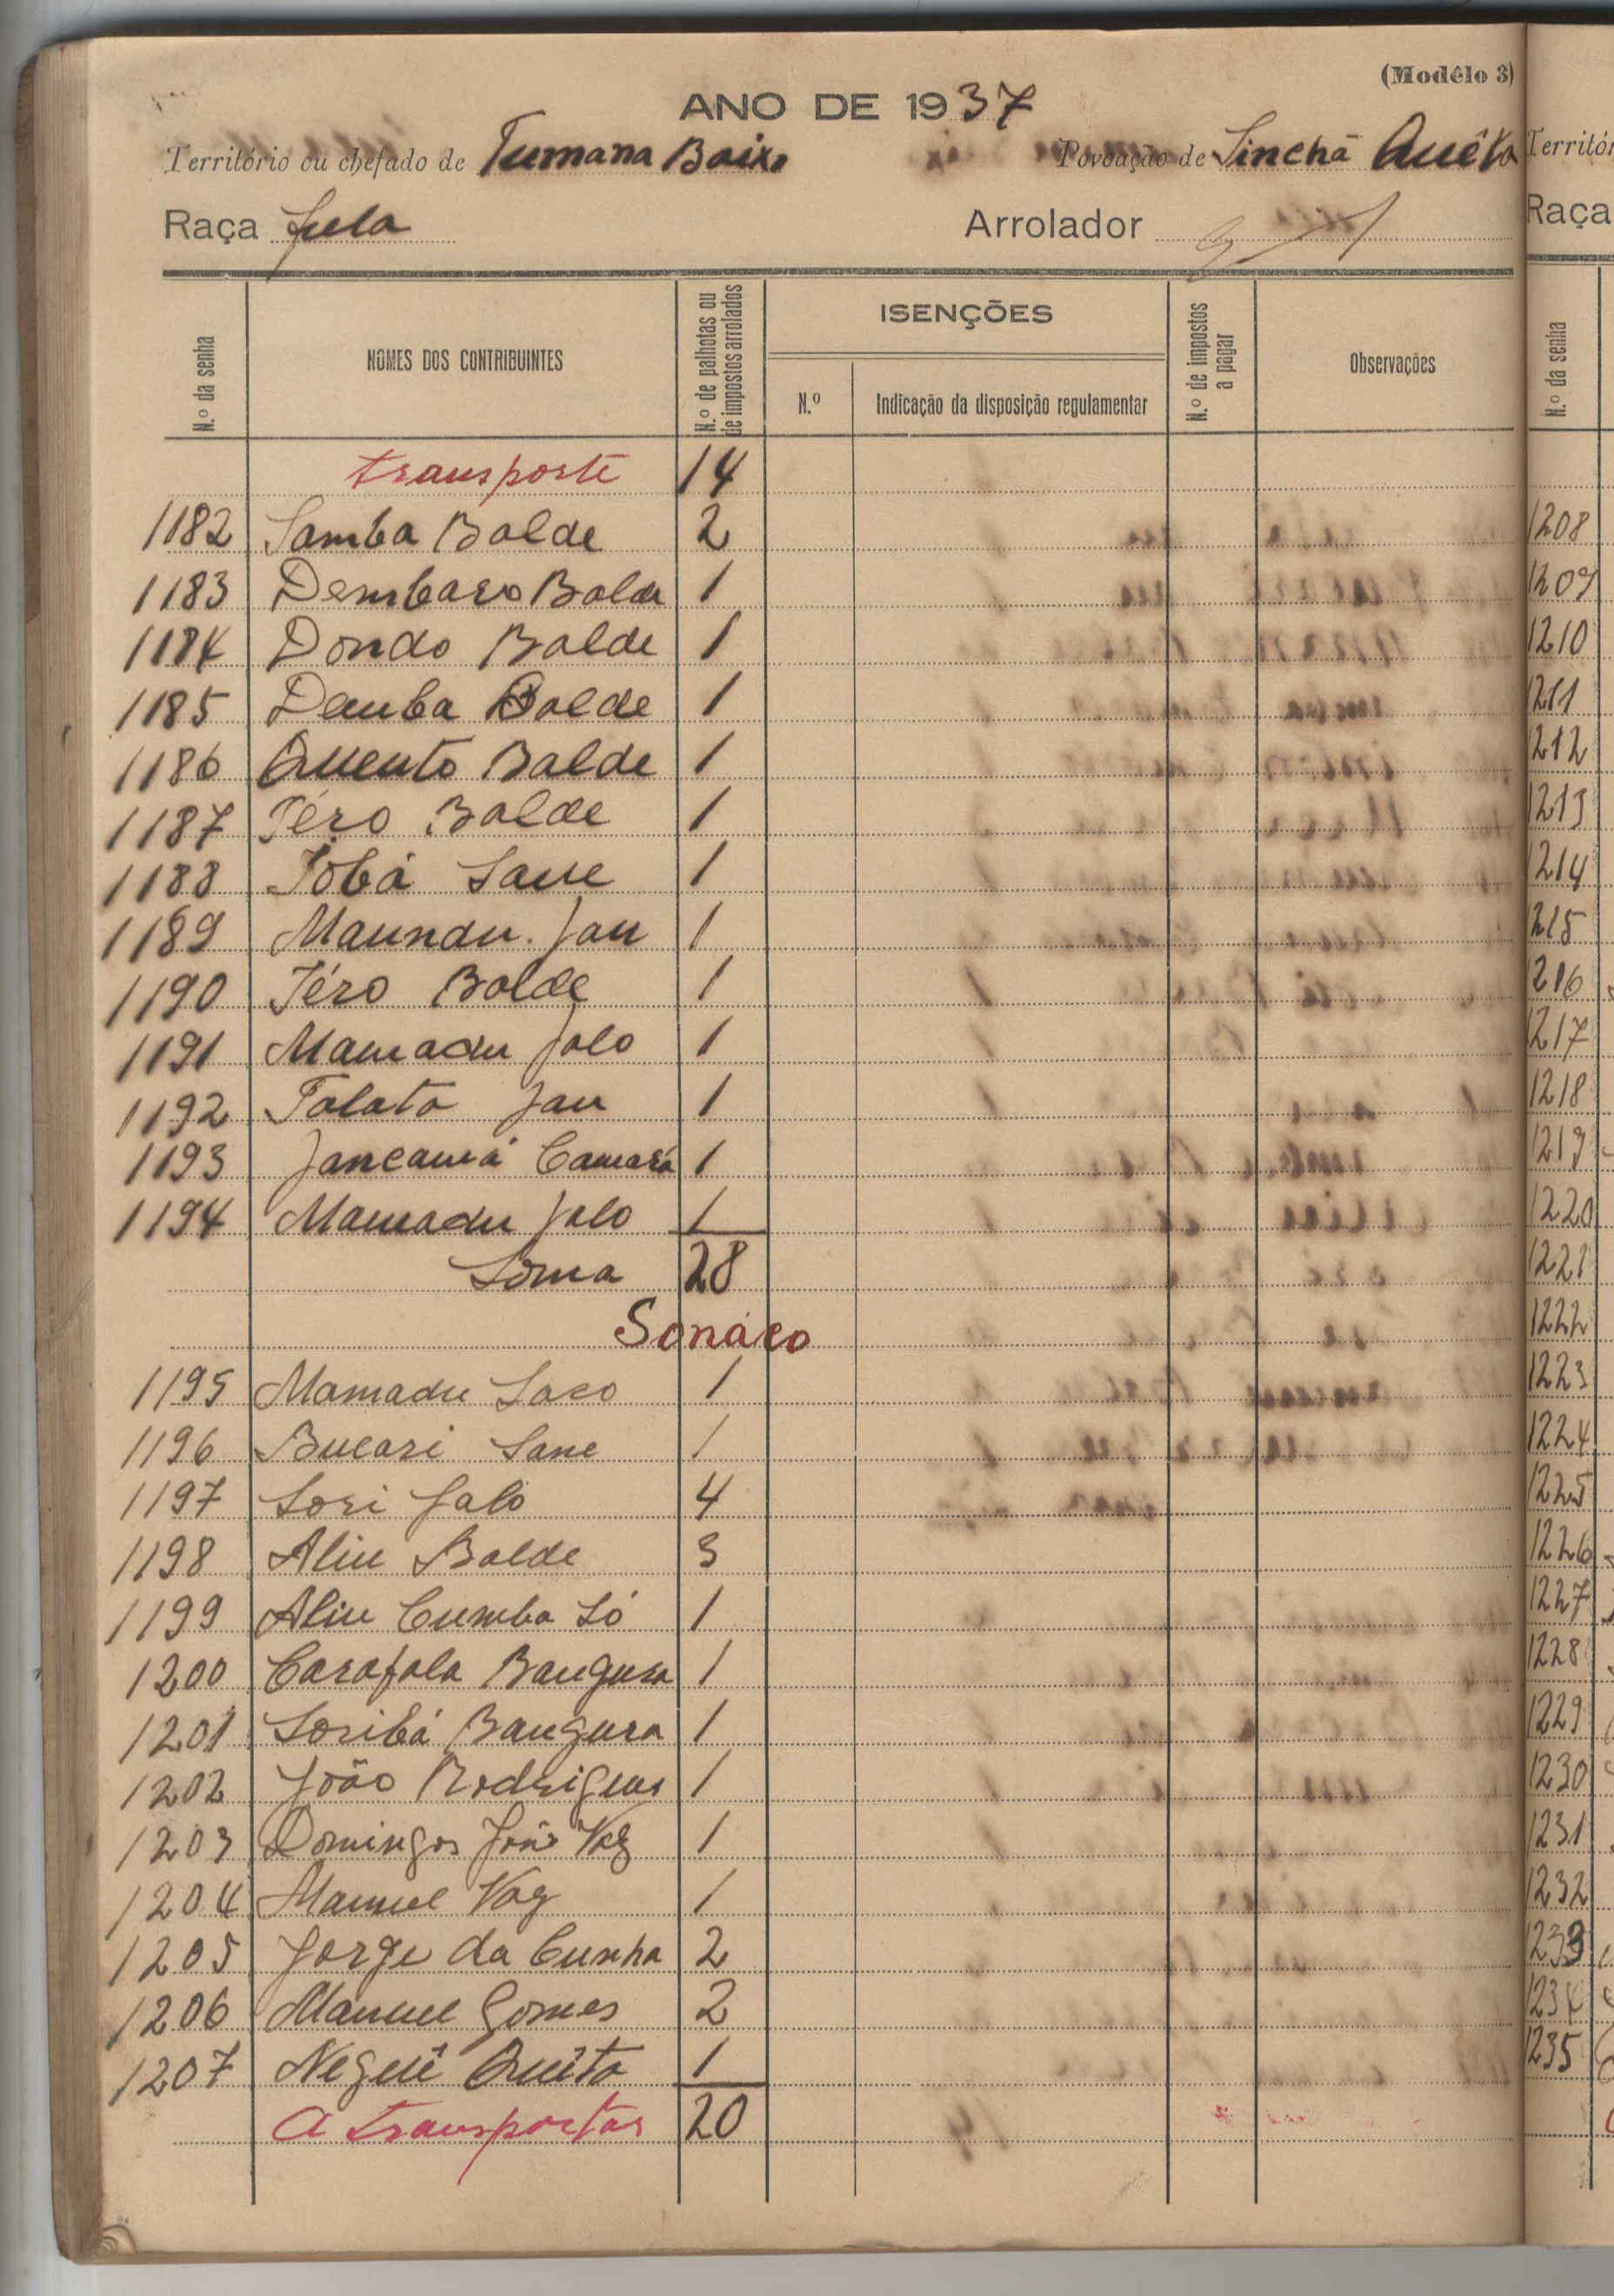 (Modêlo 3)
ANO DE 1937
Território ou chefado de Tumana Baixo Povoação de Sinchã Quêto
Raça fula Arrolador
N.º da senha NOMES DOS CONTRIBUINTES N.º de palhotas ou de impostos arrolados ISENÇÕES N.º de impostos a pagar Observações
N.º Indicação da disposição regulamentar
transporte 14
1182 Samba Balde 2
1183 Dembaro Balde 1
1184 Dondo Balde 1
1185 Demba Balde 1
1186 Quento Balde 1
1187 Téro Balde 1
1188 Jobá Sane 1
1189 Maundu Jau 1
1190 Téro Balde 1
1191 Mamadu Jalo 1
1192 Talata Jau 1
1193 Jancamá Camará 1
1194 Mamadu Jalo 1
Soma 28
Sonáco
1195 Mamadu Saco 1
1196 Bucari Sane 1
1197 Sori Jaló 4
1198 Aliu Balde 3
1199 Aliu Cumba Só 1
1200 Carafala Bangura 1
1201 Soribá Bangura 1
1202 João Rodrigues 1
1203 Domingos João Vaz 1
1204 Manuel Vaz 1
1205 Jorge da Cunha 2
1206 Manuel Gomes 2
1207 Neguê Quêta 1
A transportar 20
Territó
Raça
N.º da senha
1208
1209
1210
1211
1212
1213
1214
1215
1216
1217
1218
1219
1220
1221
1222
1223
1224
1225
1226
1227
1228
1229
1230
1231
1232
1233
1234
1235